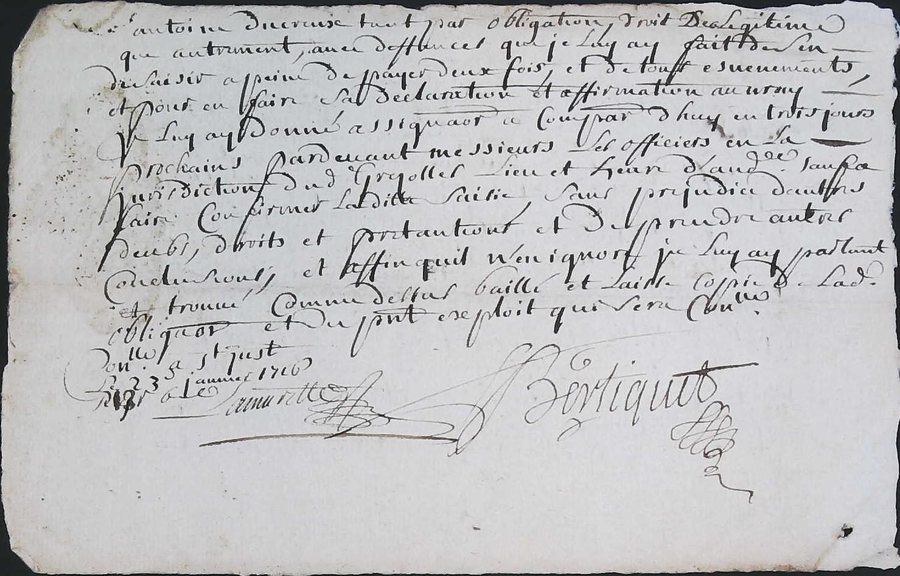 antoine ducreuse tant par obligation, droit De Legitime
que autrement, avec deffances que je Luy ay fait de sen
desaisir a peine de payer deux fois, et de tous esvenements,
et pour en faire sa declaration et affirmation au vray
je Luy ay donné assignaõn a Compar d'huy en trois jours
prochains pardevant messieurs Les officiers en La
jurisdiction dud Grezolles Lieu et heure d'aud.ce
faire Confirmer Ladite saisie, sans prejudice dautres
deubs, droits et pretantions et De prendre autres
Conclusions, et affin quil n'en ignore je Luy ay parlant
et trouvé Comme dessus baillé et Laissé Copie de Lad.
obligaõn et du pnt exploit qui sera Con.llé
Con.llé a St just
Le 23e janvier 1716
Bertiquet